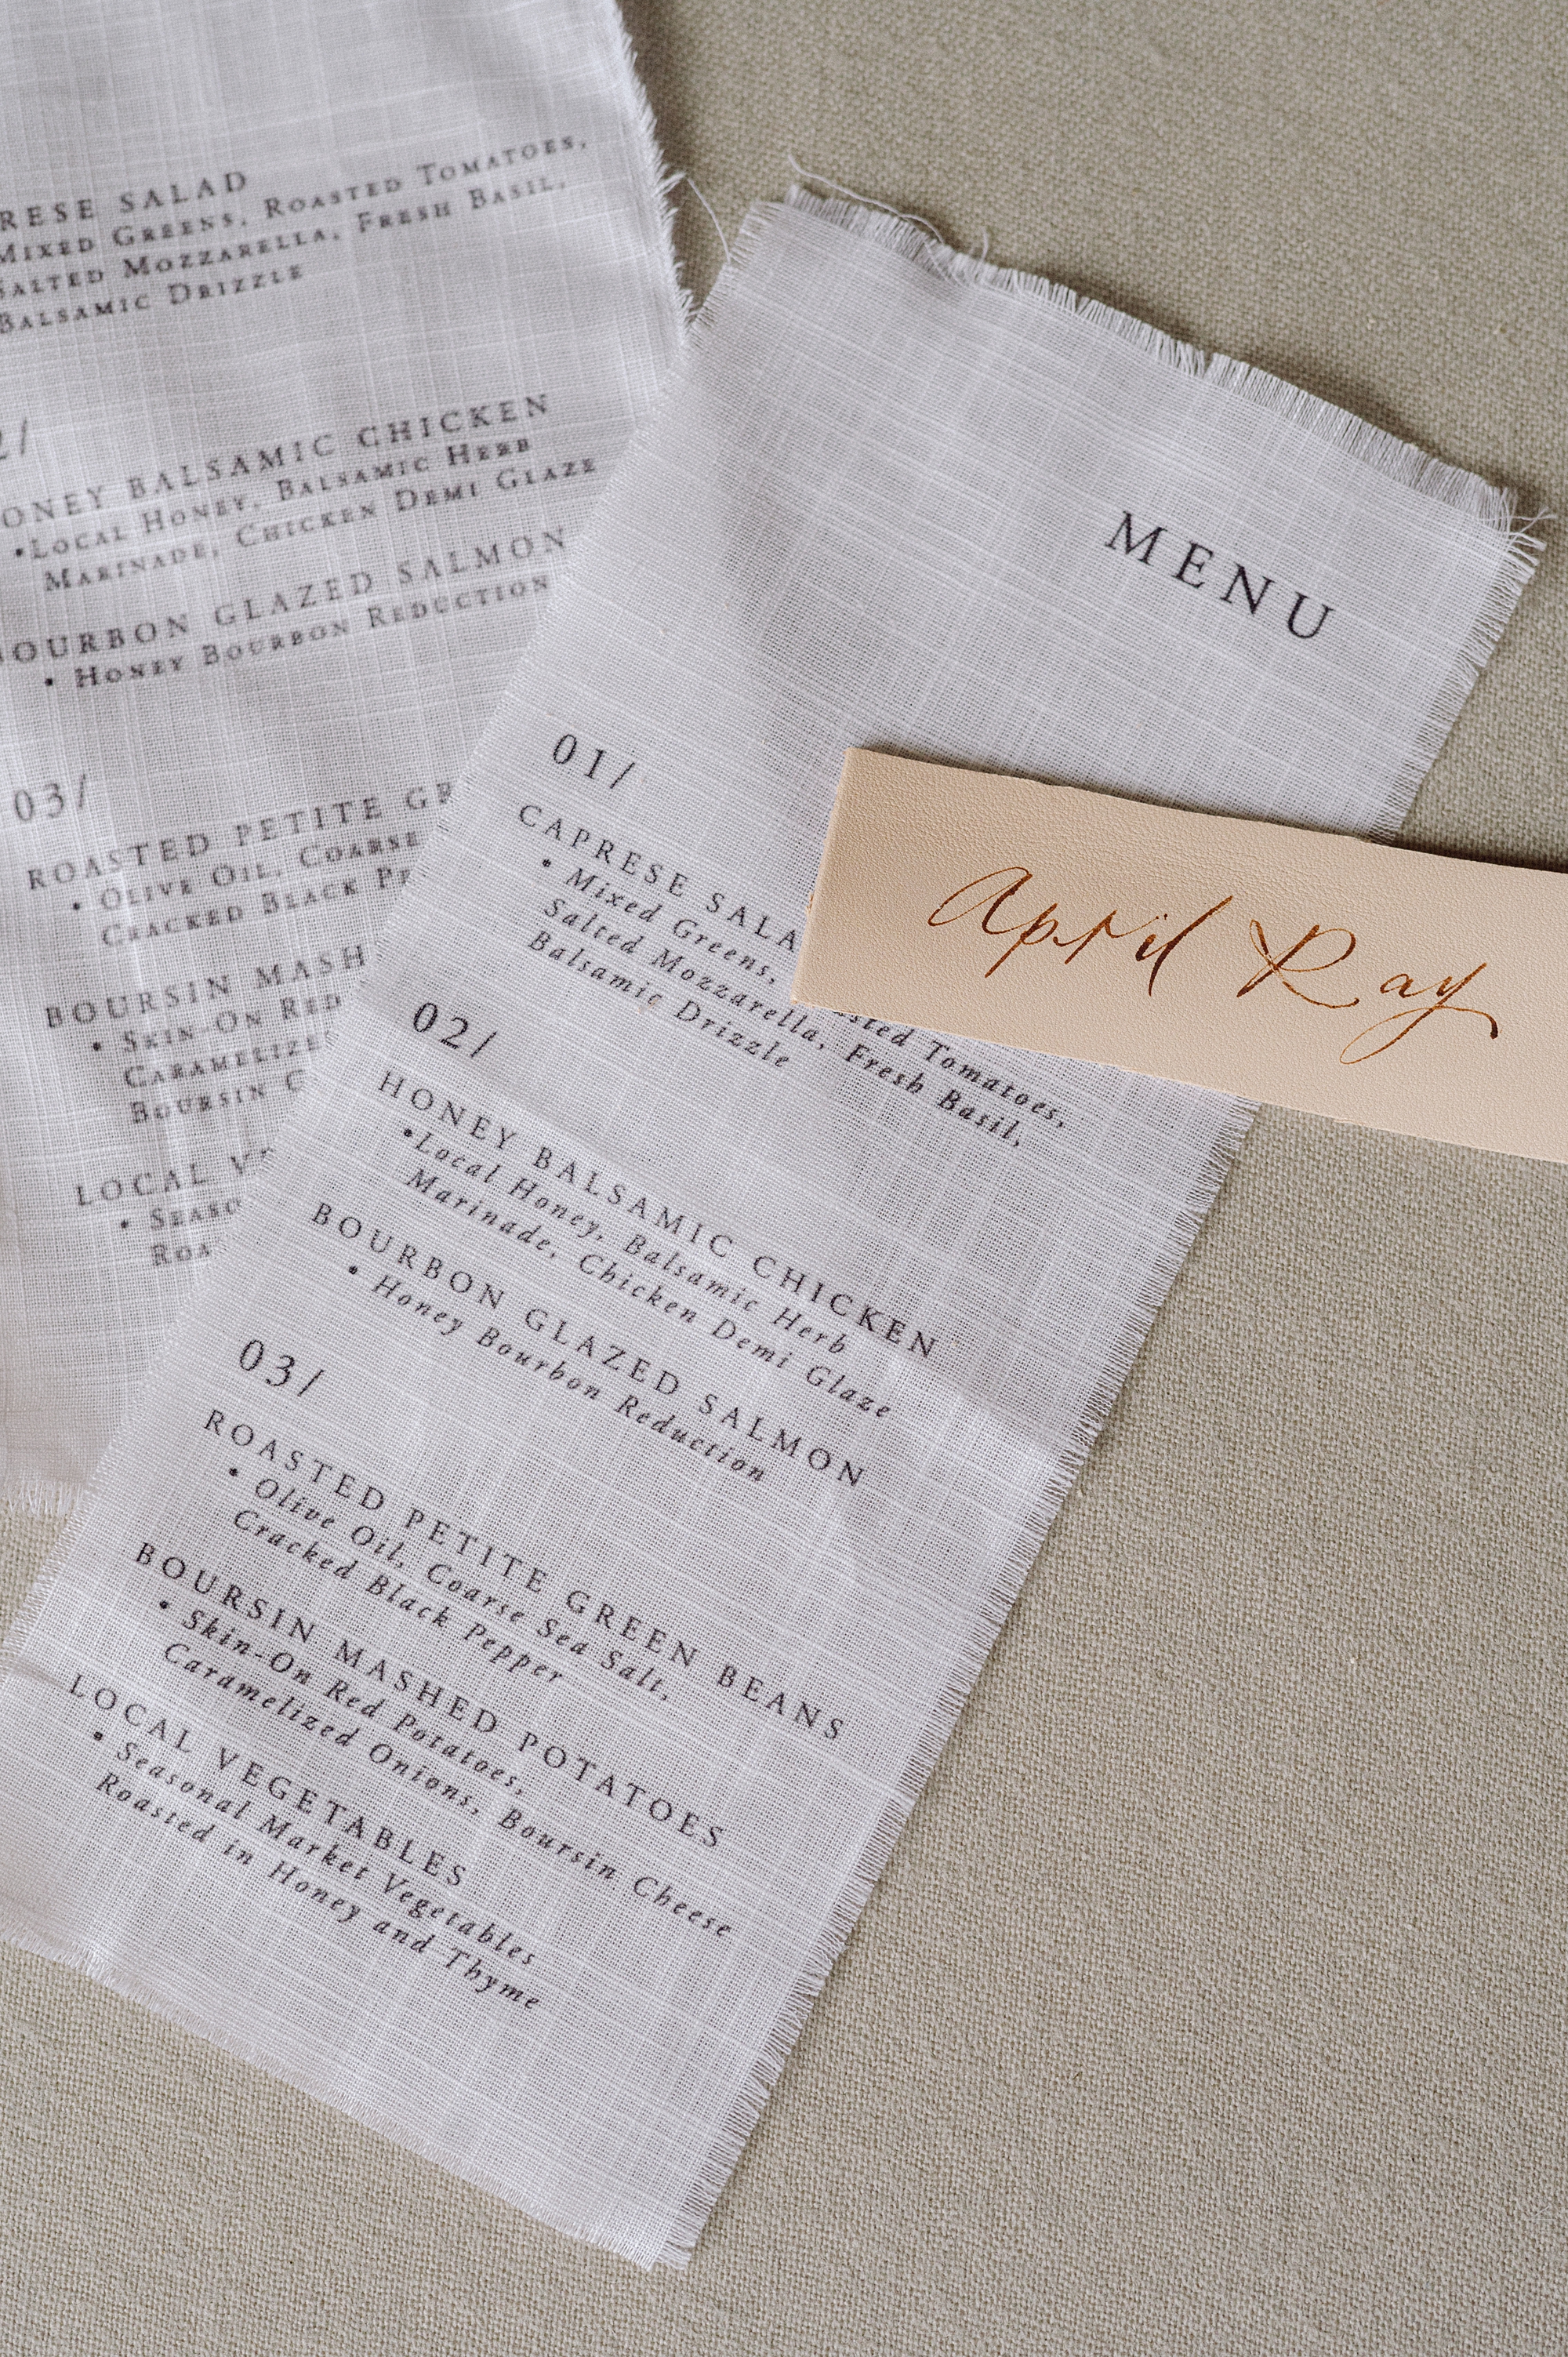 RESE SALAD
MIXED GREENS, ROASTED TOMATOES,
SALTED MOZZARELLA, FRESH BASIL,
BALSAMIC DRIZZLE
2/
ONEY BALSAMIC CHICKEN
•LOCAL HONEY, BALSAMIC HERB
MARINADE, CHICKEN DEMI GLAZE
OURBON GLAZED SALMON
• HONEY BOURBON REDUCTION
03/
ROASTED PETITE GR
• OLIVE OIL, COARSE
CRACKED BLACK PE
BOURSIN MASH
• SKIN-ON RED
CARAMELIZE
BOURSIN C
LOCAL VE
• SEASO
ROA
MENU
01/
CAPRESE SALA
• Mixed Greens, sted Tomatoes,
Salted Mozzarella, Fresh Basil,
Balsamic Drizzle
02/
HONEY BALSAMIC CHICKEN
•Local Honey, Balsamic Herb
Marinade, Chicken Demi Glaze
BOURBON GLAZED SALMON
• Honey Bourbon Reduction
03/
ROASTED PETITE GREEN BEANS
• Olive Oil, Coarse Sea Salt,
Cracked Black Pepper
BOURSIN MASHED POTATOES
• Skin-On Red Potatoes,
Caramelized Onions, Boursin Cheese
LOCAL VEGETABLES
• Seasonal Market Vegetables
Roasted in Honey and Thyme
April Ray